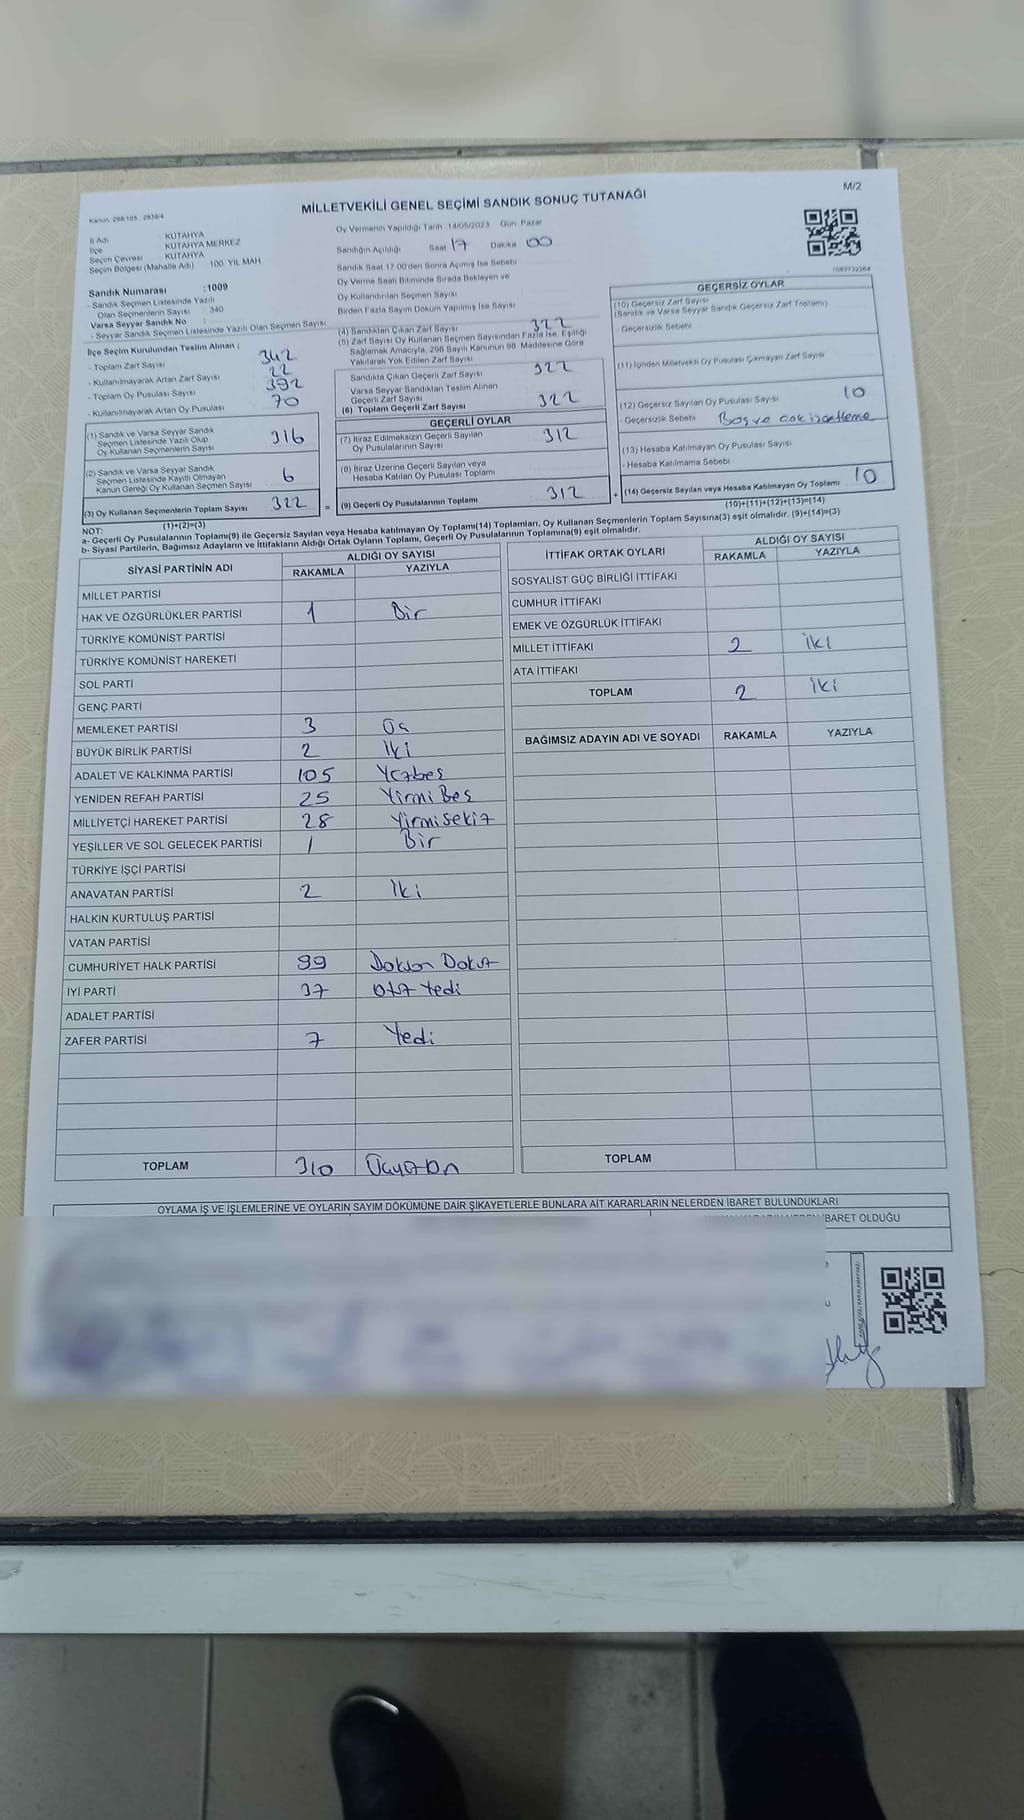 M/2
MİLLETVEKİLİ GENEL SEÇİMİ SANDIK SONUÇ TUTANAĞI
Kanun: 298/105 , 2839/4
İl Adı : KÜTAHYA
İlçe : KÜTAHYA MERKEZ
Seçim Çevresi : KÜTAHYA
Seçim Bölgesi (Mahalle Adı) : 100. YIL MAH
Sandık Numarası :1009
- Sandık Seçmen Listesinde Yazılı
Olan Seçmenlerin Sayısı : 340
Varsa Seyyar Sandık No :
- Seyyar Sandık Seçmen Listesinde Yazılı Olan Seçmen Sayısı
İlçe Seçim Kurulundan Teslim Alınan ;
- Toplam Zarf Sayısı 342
- Kullanılmayarak Artan Zarf Sayısı 22
- Toplam Oy Pusulası Sayısı 392
- Kullanılmayarak Artan Oy Pusulası 70
(1) Sandık ve Varsa Seyyar Sandık
Seçmen Listesinde Yazılı Olup
Oy Kullanan Seçmenlerin Sayısı 316
(2) Sandık ve Varsa Seyyar Sandık
Seçmen Listesinde Kayıtlı Olmayan
Kanun Gereği Oy Kullanan Seçmen Sayısı 6
(3) Oy Kullanan Seçmenlerin Toplam Sayısı 322
(1)+(2)=(3)
Oy Vermenin Yapıldığı Tarih :14/05/2023 Gün: Pazar
Sandığın Açıldığı Saat 17 Dakika 00
Sandık Saat 17:00'den Sonra Açımış İse Sebebi
Oy Verme Saati Bitiminde Sırada Bekleyen ve
Oy Kullandırılan Seçmen Sayısı
Birden Fazla Sayım Döküm Yapılmış İse Sayısı
(4) Sandıktan Çıkan Zarf Sayısı 322
(5) Zarf Sayısı Oy Kullanan Seçmen Sayısından Fazla İse, Eşitliği
Sağlamak Amacıyla, 298 Sayılı Kanunun 98. Maddesine Göre
Yakılarak Yok Edilen Zarf Sayısı
Sandıkta Çıkan Geçerli Zarf Sayısı 322
Varsa Seyyar Sandıktan Teslim Alınan
Geçerli Zarf Sayısı
(6) Toplam Geçerli Zarf Sayısı 322
GEÇERLİ OYLAR
(7) İtiraz Edilmeksizin Geçerli Sayılan
Oy Pusulalarının Sayısı 312
(8) İtiraz Üzerine Geçerli Sayılan veya
Hesaba Katılan Oy Pusulası Toplamı
= (9) Geçerli Oy Pusulalarının Toplamı 312
1083732264
GEÇERSİZ OYLAR
(10) Geçersiz Zarf Sayısı
(Sandık ve Varsa Seyyar Sandık Geçersiz Zarf Toplamı)
- Geçersizlik Sebebi
(11) İçinden Milletvekili Oy Pusulası Çıkmayan Zarf Sayısı
(12) Geçersiz Sayılan Oy Pusulası Sayısı 10
- Geçersizlik Sebebi Boş ve çok işaretleme
(13) Hesaba Katılmayan Oy Pusulası Sayısı
- Hesaba Katılmama Sebebi
+ (14) Geçersiz Sayılan veya Hesaba Katılmayan Oy Toplamı 10
(10)+(11)+(12)+(13)=(14)
NOT:
a- Geçerli Oy Pusulalarının Toplamı(9) ile Geçersiz Sayılan veya Hesaba katılmayan Oy Toplamı(14) Toplamları, Oy Kullanan Seçmenlerin Toplam Sayısına(3) eşit olmalıdır. (9)+(14)=(3)
b- Siyasi Partilerin, Bağımsız Adayların ve İttifakların Aldığı Ortak Oyların Toplamı, Geçerli Oy Pusulalarının Toplamına(9) eşit olmalıdır.
SİYASİ PARTİNİN ADI ALDIĞI OY SAYISI
RAKAMLA YAZIYLA
MİLLET PARTİSİ
HAK VE ÖZGÜRLÜKLER PARTİSİ 1 Bir
TÜRKİYE KOMÜNİST PARTİSİ
TÜRKİYE KOMÜNİST HAREKETİ
SOL PARTİ
GENÇ PARTİ
MEMLEKET PARTİSİ 3 Üç
BÜYÜK BİRLİK PARTİSİ 2 İki
ADALET VE KALKINMA PARTİSİ 105 Yüzbeş
YENİDEN REFAH PARTİSİ 25 Yirmi Beş
MİLLİYETÇİ HAREKET PARTİSİ 28 Yirmisekiz
YEŞİLLER VE SOL GELECEK PARTİSİ 1 Bir
TÜRKİYE İŞÇİ PARTİSİ
ANAVATAN PARTİSİ 2 İki
HALKIN KURTULUŞ PARTİSİ
VATAN PARTİSİ
CUMHURİYET HALK PARTİSİ 99 Doksan Dokuz
İYİ PARTİ 37 Otuz Yedi
ADALET PARTİSİ
ZAFER PARTİSİ 7 Yedi
TOPLAM 310 Üçyüzon
İTTİFAK ORTAK OYLARI ALDIĞI OY SAYISI
RAKAMLA YAZIYLA
SOSYALİST GÜÇ BİRLİĞİ İTTİFAKI
CUMHUR İTTİFAKI
EMEK VE ÖZGÜRLÜK İTTİFAKI
MİLLET İTTİFAKI 2 İki
ATA İTTİFAKI
TOPLAM 2 İki
BAĞIMSIZ ADAYIN ADI VE SOYADI RAKAMLA YAZIYLA
TOPLAM
OYLAMA İŞ VE İŞLEMLERİNE VE OYLARIN SAYIM DÖKÜMÜNE DAİR ŞİKAYETLERLE BUNLARA AİT KARARLARIN NELERDEN İBARET BULUNDUKLARI
İBARET OLDUĞU